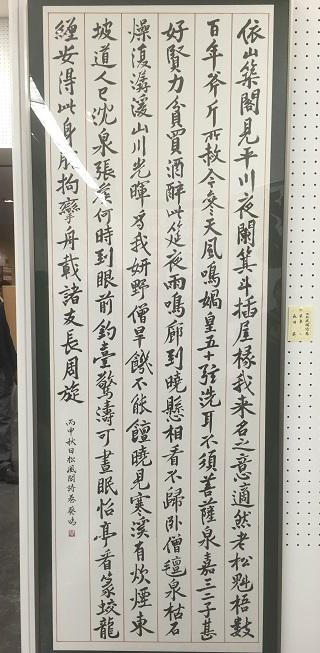 依山築閣見平川夜闌箕斗插屋椽我来名之意適然老松魁梧數
百年斧斤所赦今參天風鳴媧皇五十弦洗耳不須菩薩泉嘉三二子甚
好賢力貧買酒醉此筵夜雨鳴廊到曉懸相看不歸卧僧氊泉枯石
燥復潺湲山川光暉為我妍野僧旱饑不能饘曉見寒溪有炊煙東
坡道人已沈泉張侯何時到眼前釣臺驚濤可晝眠怡亭看篆蛟龍
纏安得此身脫拘攣舟載諸友長周旋
丙申秋日松風閣詩卷